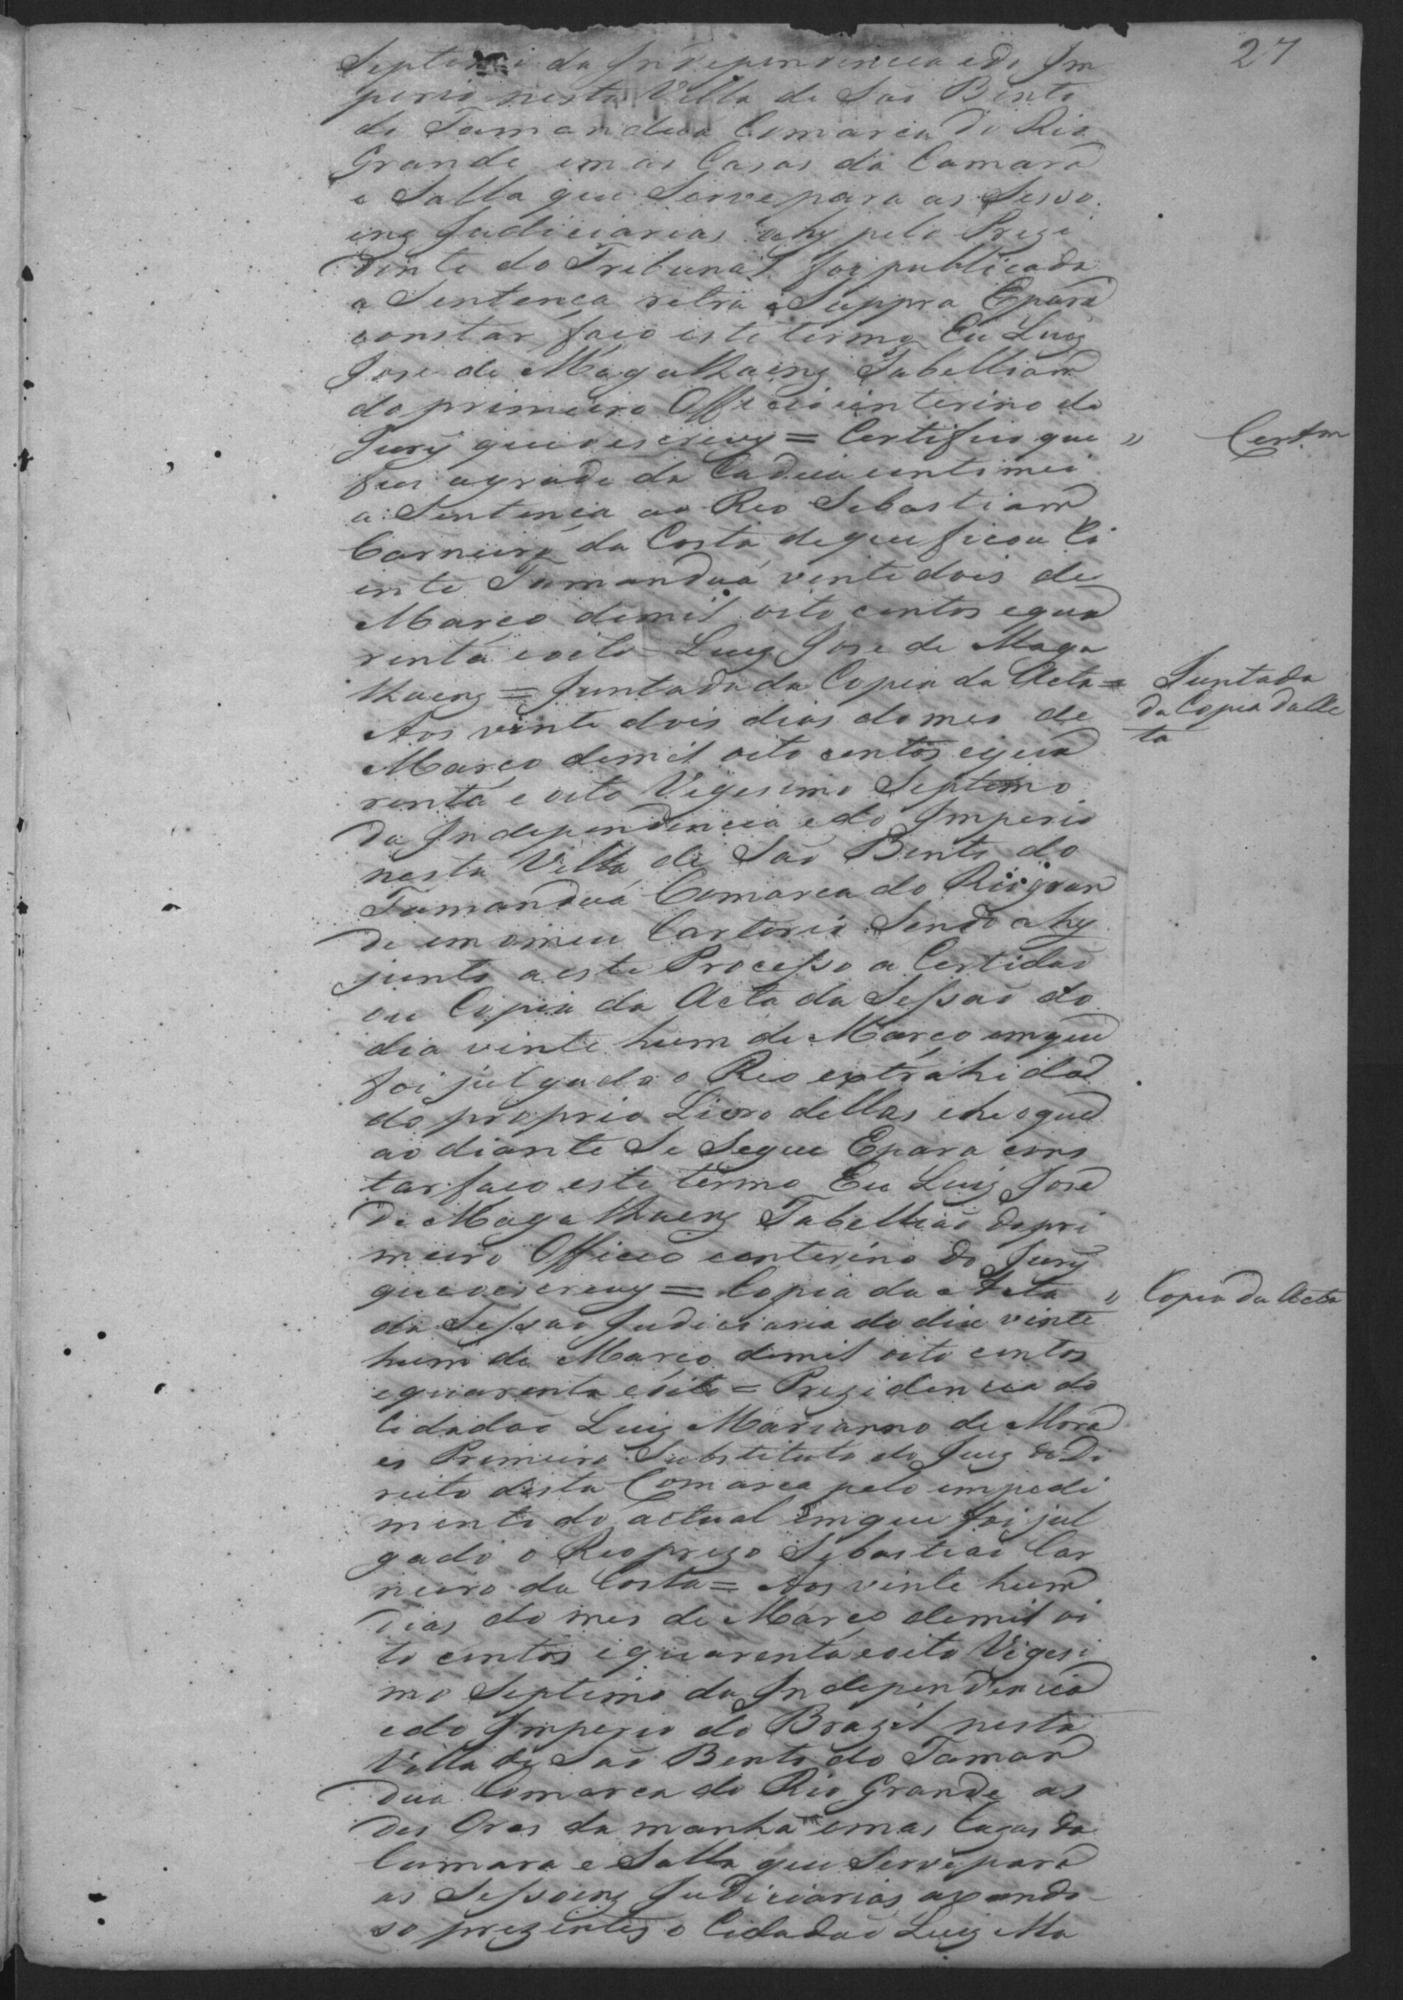 27
Septimo da Independencia e do Im
perio nesta Villa de São Bento
do Tamandua Comarca do Rio
Grande em as Casas da Camara
e Salla que Serve para as Sesso
ens Judiciarias ahy pelo Prezi
dente do Tribunal foi publicada
a Sentença retra e Suppra Epara
constar faço este termo Eu Luiz
Jose de Magalhaens Tabelliam
do primeiro Officio interino do
Jury que o escrevy = Certifico que
fui a grade da Cadeia eintimei
a Sentença ao Reo Sebastiam
Carneiro da Costa de que ficou Ci
ente Tamanduá vinte dois de
Março demil oito centos equa
renta eoito Luiz Jose de Maga
lhaens = Juntada da Copia da Acta =
Aos vinte dois dias do mes de
Março demil oito centos equa
renta e oito Vigesimo Septimo
da Independencia e do Imperio
nesta Villa de São Bento do
Tamanduá Comarca do Rio gran
de em omeu Cartorio Sendo ahy
junto a este Processo a Certidão
ou Copia da Acta da Sessão do
dia vinte hum de Março emque
foi julgado o Reo extrahida
do proprio Livro dellas ehe oque
ao diante Se Segue Epara cons
tar faço este termo Eu Luiz Jose
de Magalhaens Tabellião do pri
meiro Officio enterino do Jury
que oescrevy = Copia da Acta
da Sessão Judiciaria do dia vinte
hum de Março demil oito centos
equarenta eoito = Prezidencia do
Cidadão Luiz Marianno de Mora
es Primeiro Substituto do Juiz de Di
reito desta Comarca pelo impedi
mento do actual Emque foi jul
gado o Reo prezo Sebastião Car
neiro da Costa = Aos vinte hum
dias do mes de Março demil oi
to centos equarenta eoito Vigesi
mo Septimo da Independencia
edo Imperio do Brazil nesta
Villa de São Bento do Taman
dua Comarca do Rio Grande as
des Oras da manhã emas Cazas da
Camara e Salla que Serve para
as Sessoens Judiciarias axando-
so prezentes o Cidadão Luiz Ma
" Certam
Juntada
da Copia da Ac
ta
" Copia da Acta